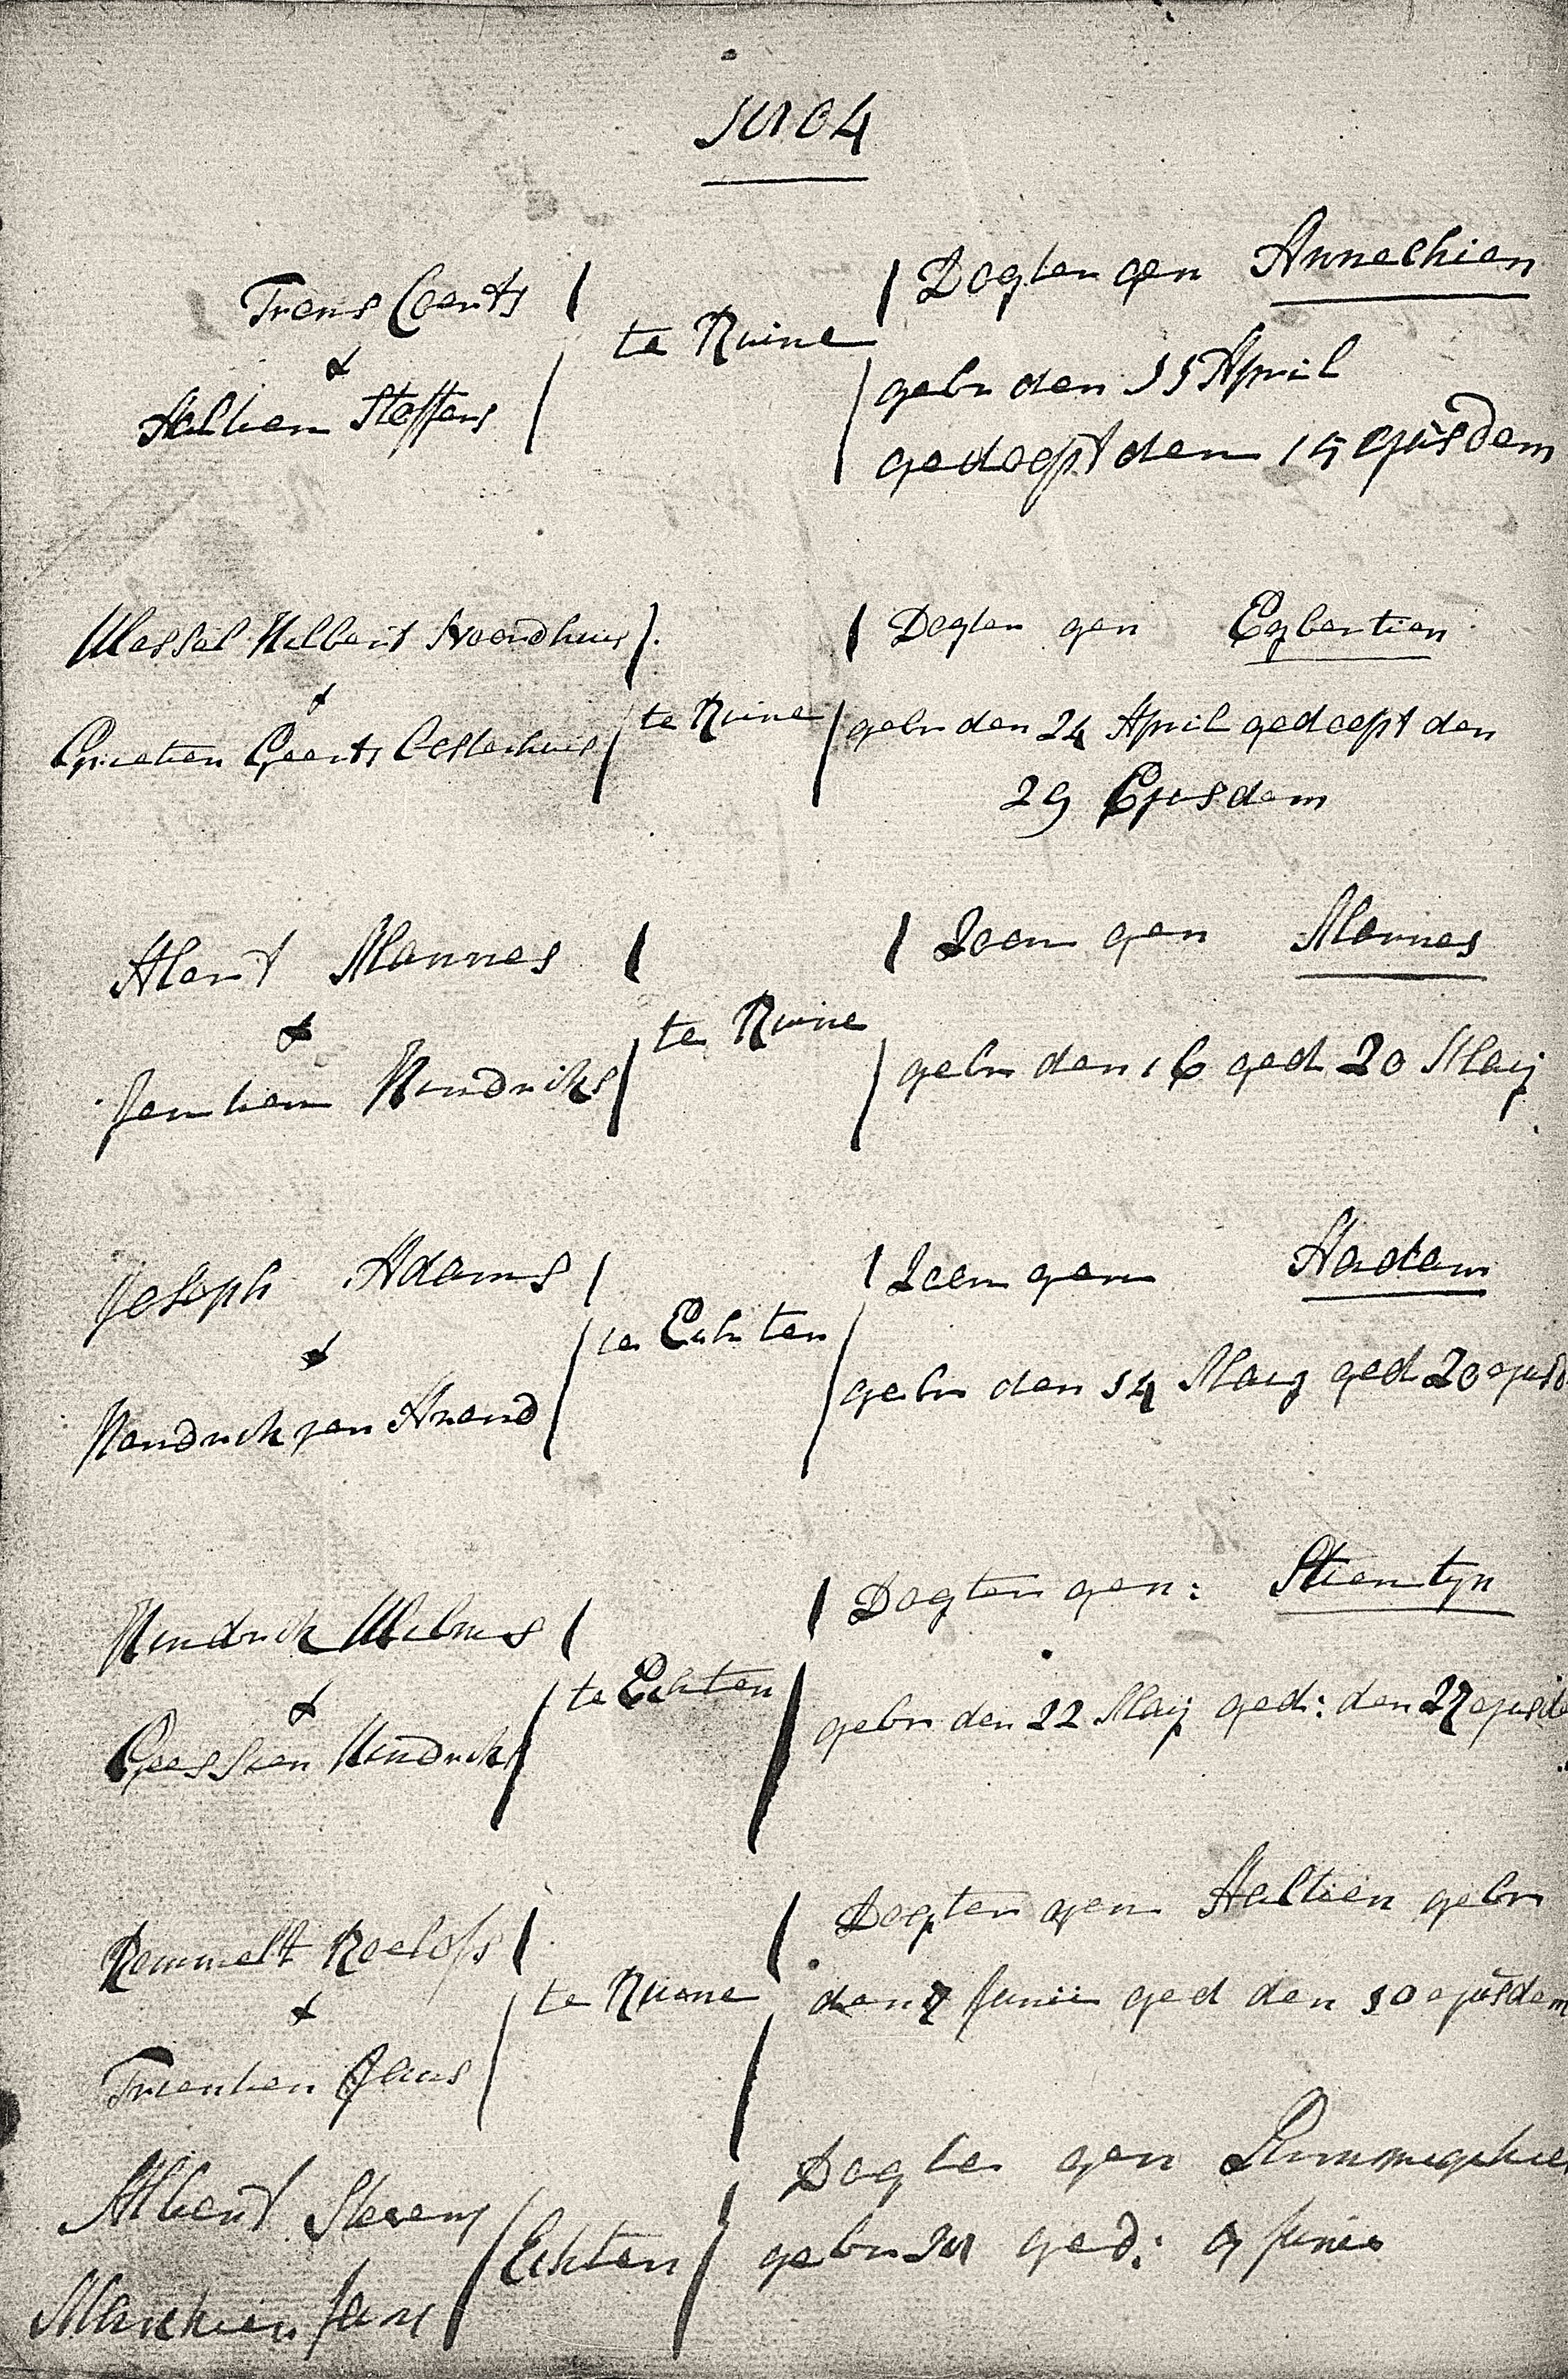 1804
Frens Coerts
&
Aaltien Steffens
te Ruine
Dogter gen Annechien
gebr den 11 April
gedoopt den 15 ejusdem
Wessel Hilbert Noordhuis
&
Grietien Geerts Oosterhuis
te Ruine
Dogter gen Egbertien
gebr den 24 April gedoopt den
29 Ejusdem
Alert Mannes
&
Jantien Hendriks
te Ruine
Zoon gen Mannes
gebr den 16 ged 20 Maij
Joseph Adams
&
Hendrich van Arend
te Echten
Zoon gen Aadam
gebr den 14 Maij ged 20 ejusd
Hendrich Wilms
&
Geessien Hindriks
te Echten
Dogter gen: Stientyn
gebr den 22 Maij ged: den 27 ejusde
Remmelt Roelofs
&
Trientien Jans
te Ruine
Dogter gen Aaltien gebr
den 7 Junii ged den 10 ejusdem
Albert Stevens
Marchien Jans
Echten
Dogter gen
gebr ged: 9 Junii